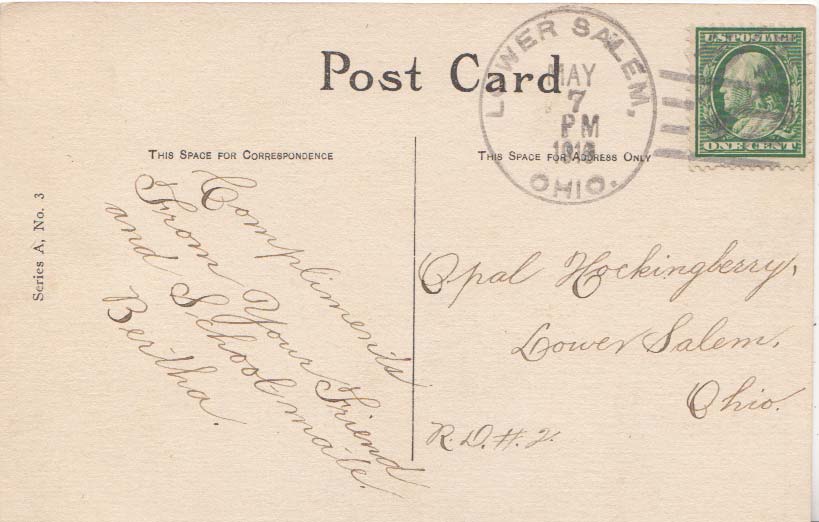 Post Card
LOWER SALEM,
OHIO.
MAY
7
PM
U.S. POSTAGE
ONE CENT
THIS SPACE FOR CORRESPONDENCE
THIS SPACE FOR ADDRESS ONLY
Series A, No. 3
Compliments
From Your Friend
and School mate.
Bertha.
Opal Hockingberry,
Lower Salem,
Ohio.
R. D. #. 2.